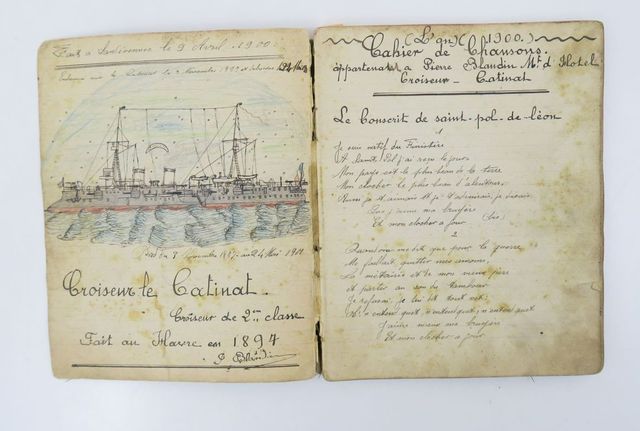 Fait à le 9 Avril 1900
le 2 Novembre
8 Novembre au 24 Mai 1901
Croiseur le Catinat.
Croiseur de 2me classe
Fait au Havre en 1894
P. Blandin
(L'an) (1900.)
Cahier de Chansons.
appartenant à Pierre Blandin Mt d'Hotel
Croiseur - Catinat
Le Conscrit de saint-pol-de-léon
1
Je suis natif du Finistère
A Saint Pol j'ai reçu le jour
Mon pays est le plus beau de la terre
Mon clocher le plus beau d'alentour
Et mon clocher à jour (bis)
2
que pour la guerre
Me fallait quitter mes amours,
La métairie et de mon vieux père
et partir au son du tambour
Je refusai je lui dit tout net
J'aime mieux ma bruyère
Et mon clocher à jour